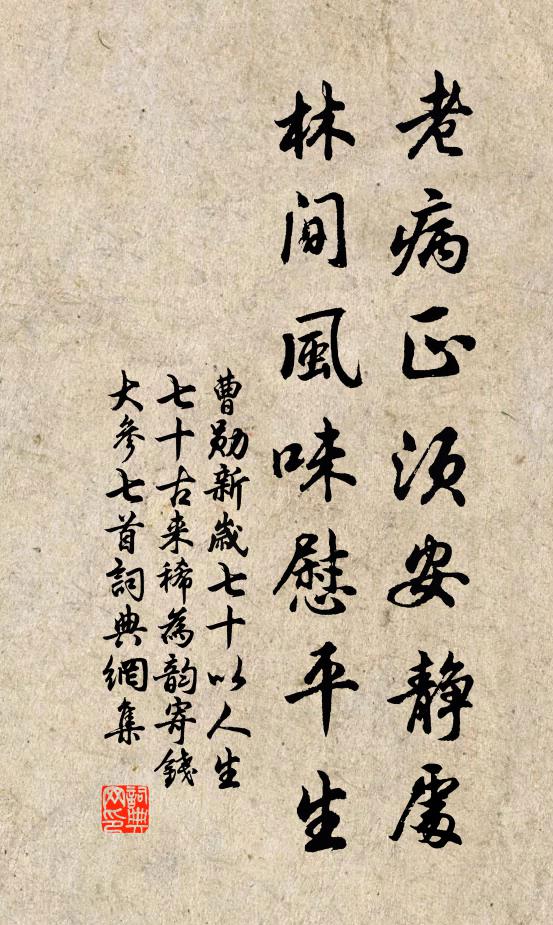 老病正須安靜處
林間風味慰平生
曹勛新歲七十以人生
七十古来稀為韵寄錢
大參七首詞典網集
詞典
网印